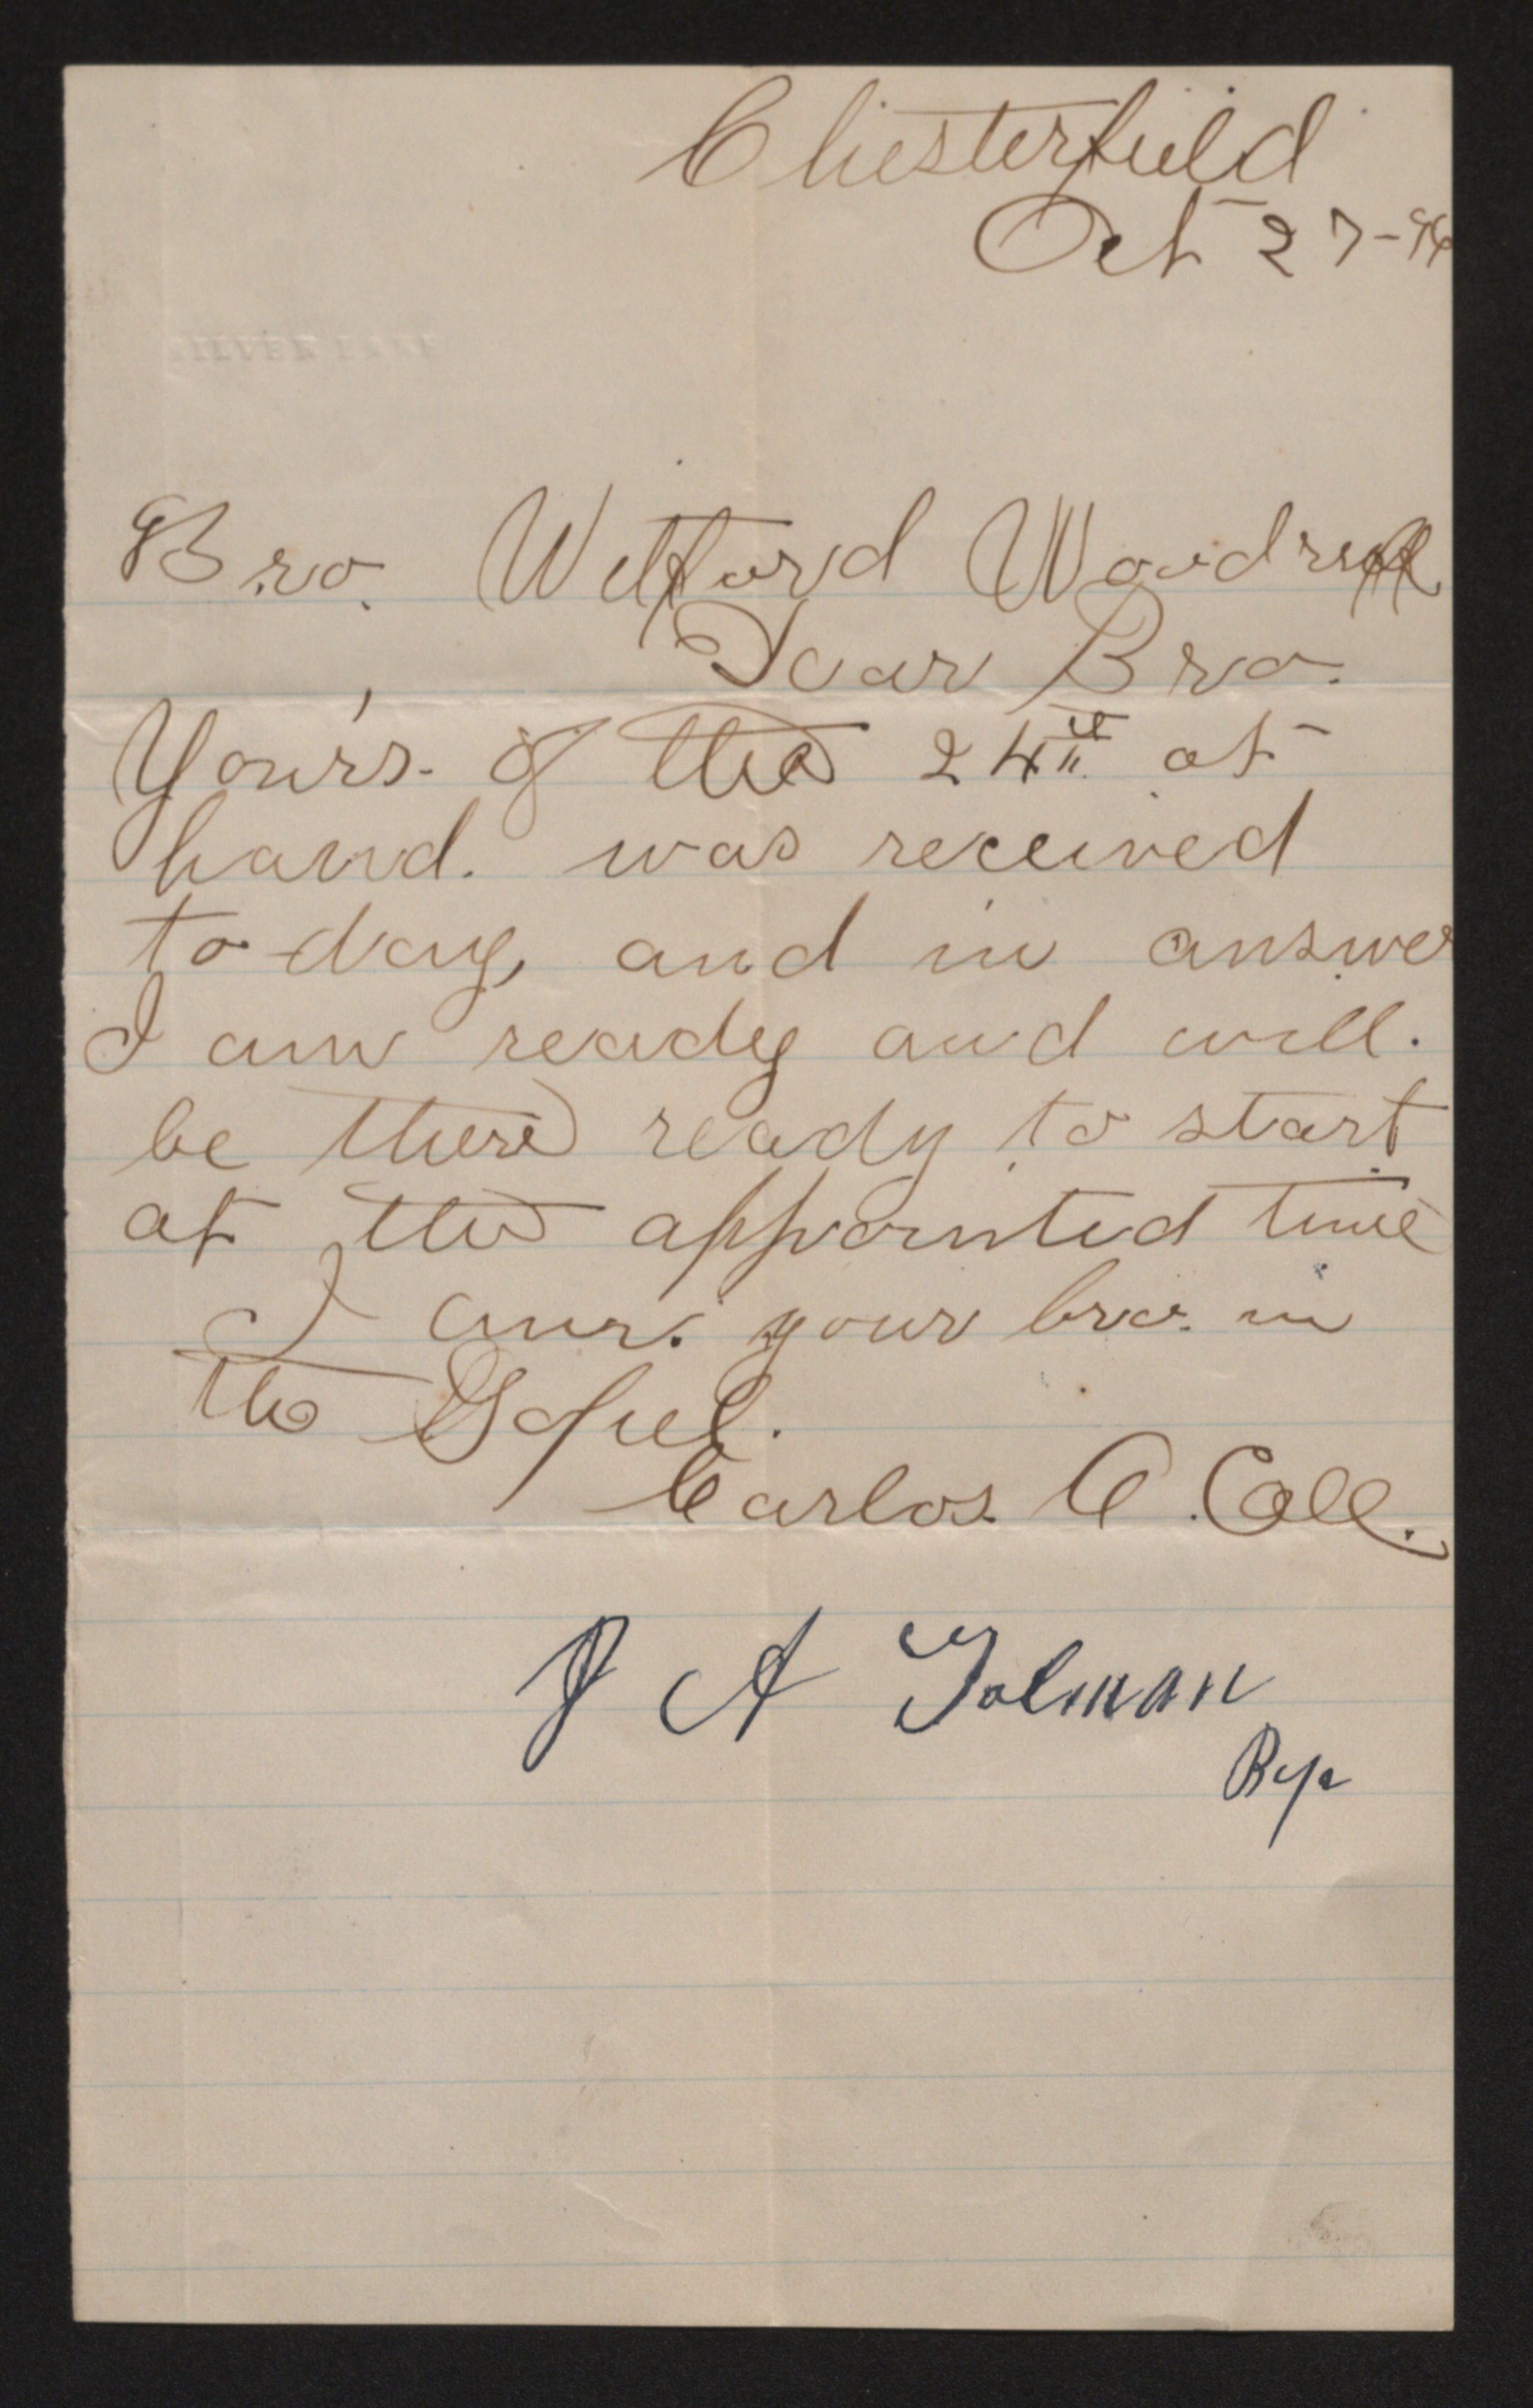 Chesterfield
Oct 27-96
Bro. Wilford Woodruff
Dear Bro.
Your's of the 24th at
hand. was received
to day, and in answer
I am ready and will.
be there ready to start
at the appointed time
I am. your bro. in
the Gospel.
Carlos C. Call.
J A Tolman
Bp